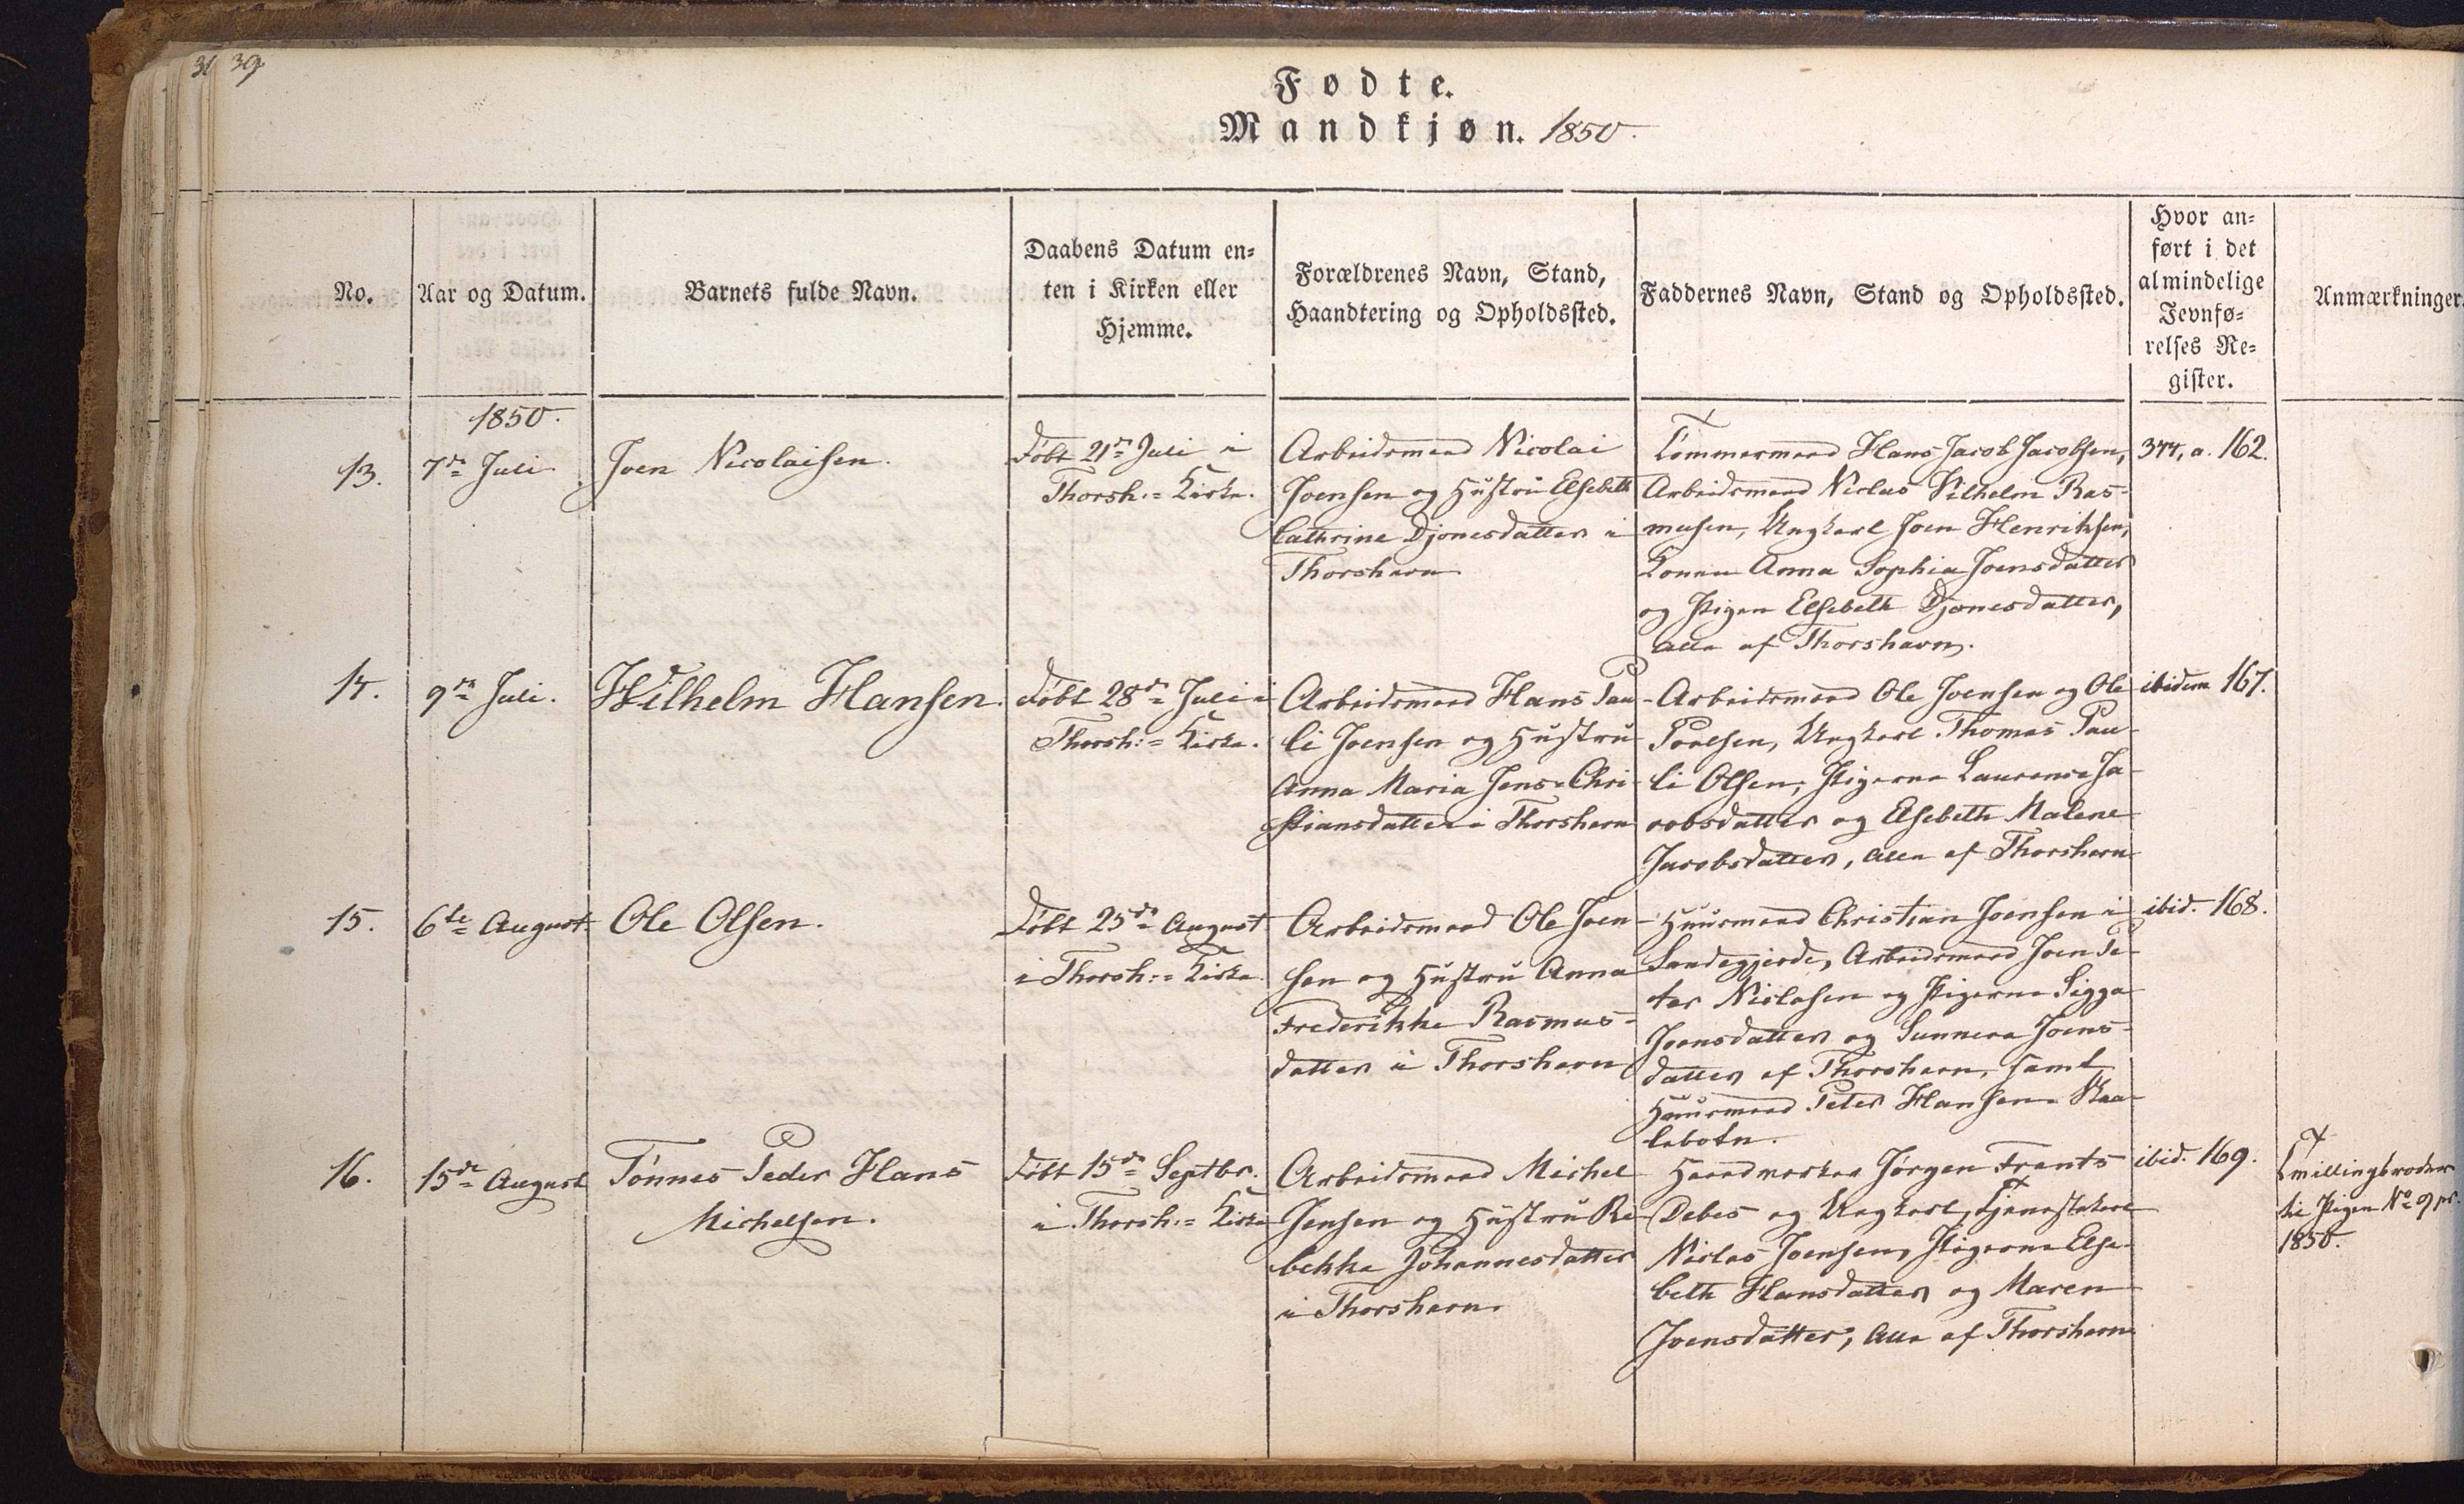 31 39
Fødte.
Mandkjøn. 1850.
No.
Aar og Datum.
Barnets fulde Navn.
Daabens Datum en-
ten i Kirken eller
Hjemme.
Forældrenes Navn, Stand,
Haandtering og Opholdssted.
Faddernes Navn, Stand og Opholdssted.
Hvor an-
ført i det
almindelige
Jevnfø-
relses Re-
gister.
Anmærkninger.
1850.
13.
7de Juli
Joen Nicolaisen.
Døbt 21de Juli i
Thorsh:= Kirke.
Arbeidsmand Nicolai
Joensen og Hustru Elsebeth
Cathrine Djonesdatter i
Thorshavn
Tømmermand Hans Jacob Jacobsen,
Arbeidsmand Niclas Vilhelm Ras-
musen, Ungkarl Joen Henriksen,
Konen Anna Sophia Joensdatter
og Pigen Elsebeth Djonesdatter,
alle af Thorshavn.
344, a. 162.
14.
9de Juli.
Wilhelm Hansen.
Døbt 28de Juli i
Thorsh:= Kirke.
Arbeidsmand Hans Pau-
li Joensen og Hustru
Anna Maria Jens-Chri-
stiansdatter i Thorshavn
Arbeidsmand Ole Joensen og Ole
Poulsen, Ungkarl Thomas Pau-
li Olsen, Pigerne Laurense Ja-
cobsdatter og Elsebeth Malene
Jacobsdatter, alle af Thorshavn
ibidem 167.
15.
6te August
Ole Olsen.
Døbt 25de August
i Thorsh:= Kirke
Arbeidsmand Ole Joen-
sen og Hustru Anna
Frederikke Rasmus-
datter i Thorshavn
Huusmand Christian Joensen i
Sandegjerde, Arbeidsmand Joen Pe-
ter Niclasen og Pigerne Sigga
Joensdatter og Sunneva Joens-
datter af Thorshavn, samt
Huusmand Peter Hansen Kaa-
lebotn.
ibid. 168.
16.
15de August
Tönnes Peder Hans
Michelsen.
Døbt 15de Septbr.
i Thorsh:= Kirke
Arbeidsmand Michel
Jensen og Hustru Re-
bekka Johannesdatter
i Thorshavn
Haandverker Jörgen Frants
Debes og Ungkarl, Tjenestekarl
Niclas Joensen, Pigerne Else-
beth Hansdatter og Maren
Joensdatter, alle af Thorshavn
ibid. 169.
Tvillingbroder
til Pigen No 9 pr.
1850.